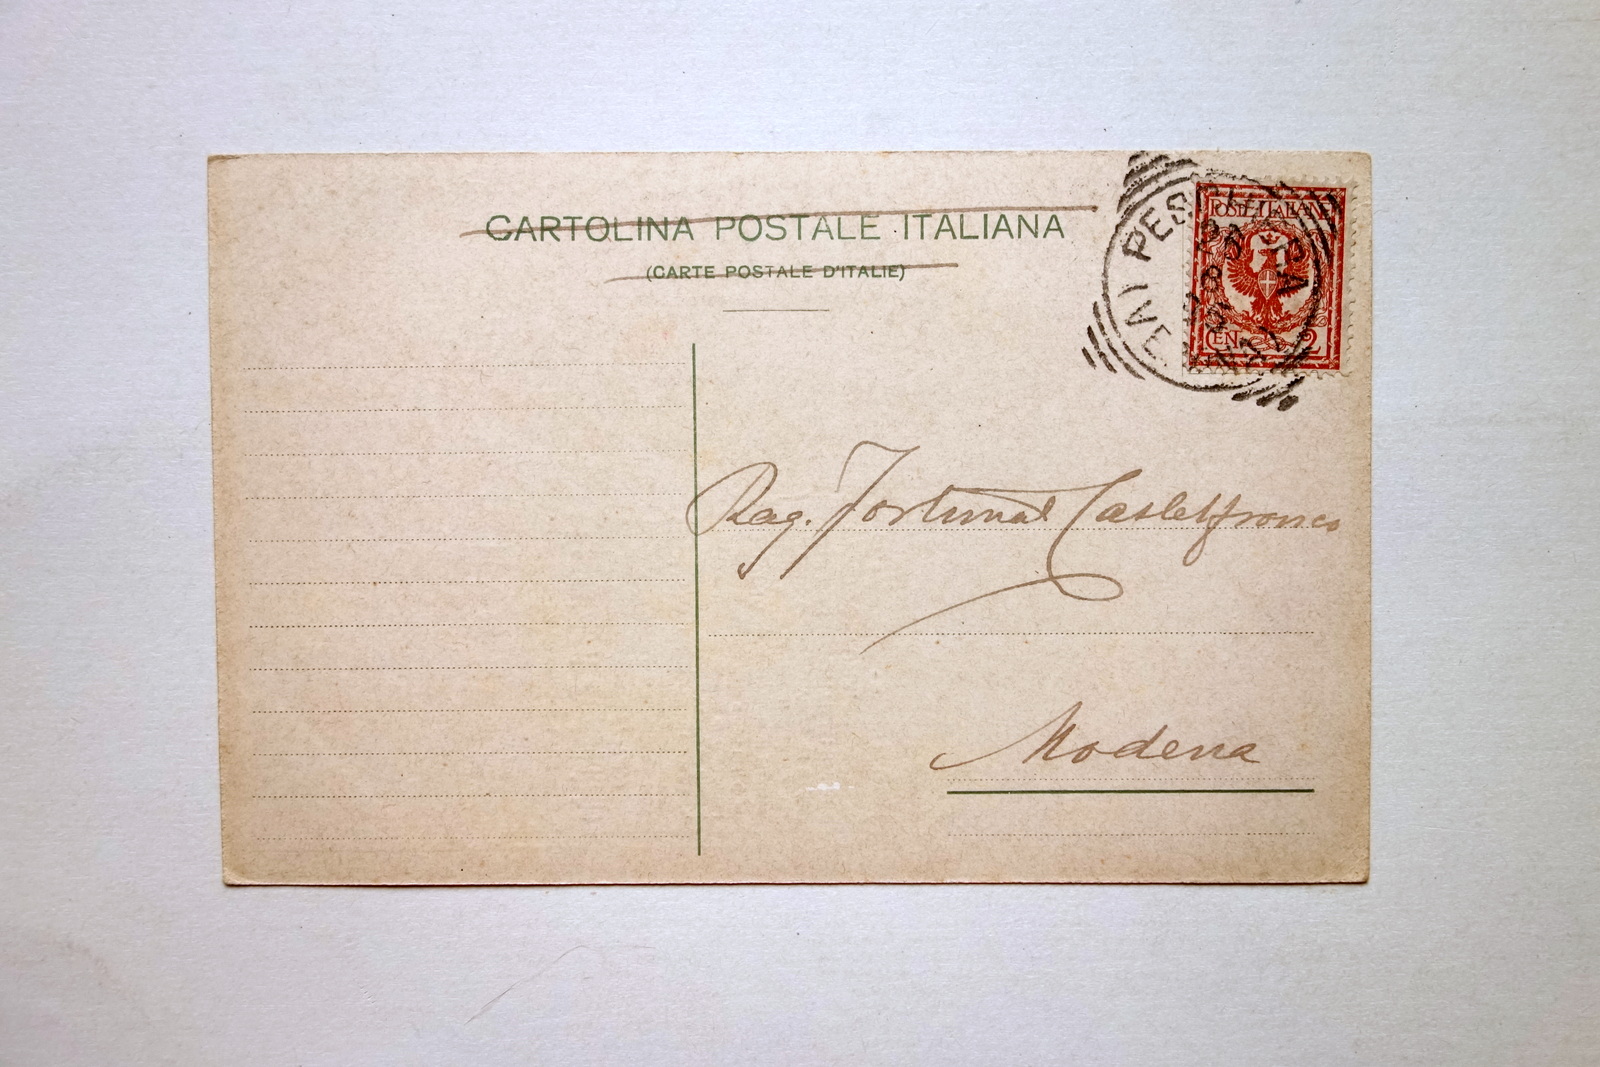 CARTOLINA POSTALE ITALIANA
(CARTE POSTALE D'ITALIE)
POSTE ITALIANE
CEN. 2
PESCHIERA
Rag. Fortunat Castelfranco
Modena